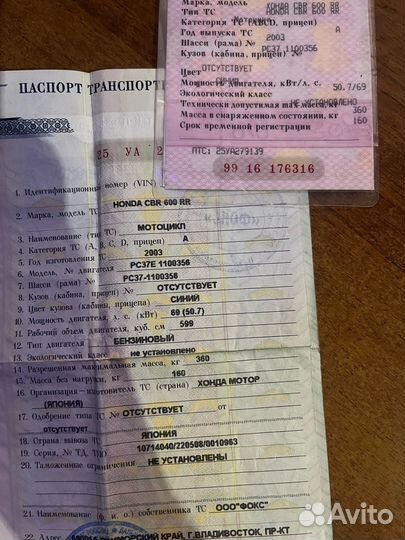 Марка, модель ХОНДА CBR 600 RR
Тип ТС Мотоцикл
Категория ТС (ABCD, прицеп) A
Год выпуска ТС 2003
Шасси (рама) № PC37 1100356
Кузов (кабина, прицеп) №
ОТСУТСТВУЕТ
Цвет СИНИЙ
Мощность двигателя, кВт/л. с. 50.7/69
Экологический класс
НЕ УСТАНОВЛЕНО
Технически допустимая max масса, кг 360
Масса в снаряженном состоянии, кг 160
Срок временной регистрации
ПТС: 25УА279139
99 16 176316
ПАСПОРТ ТРАНСПОРТ
25 УА 2
1. Идентификационный номер (VIN)
HONDA CBR 600 RR
2. Марка, модель ТС
МОТОЦИКЛ
3. Наименование (тип ТС)
4. Категория ТС (А, В, С, D, прицеп) A
5. Год изготовления ТС 2003
6. Модель, № двигателя PC37E 1100356
7. Шасси (рама) № PC37-1100356
8. Кузов (кабина, прицеп) № ОТСУТСТВУЕТ
9. Цвет кузова (кабины, прицепа) СИНИЙ
10. Мощность двигателя, л. с. (кВт) 69 (50.7)
11. Рабочий объем двигателя, куб. см 599
12. Тип двигателя БЕНЗИНОВЫЙ
13. Экологический класс не установлено
14. Разрешенная максимальная масса, кг 360
15. Масса без нагрузки, кг 160
16. Организация—изготовитель ТС (страна) ХОНДА МОТОР
(ЯПОНИЯ)
17. Одобрение типа ТС № ОТСУТСТВУЕТ от
18. Страна вывоза ТС ЯПОНИЯ
19. Серия, № ТД, ТПО 10714040/220508/0010963
20. Таможенные ограничения НЕ УСТАНОВЛЕНЫ
21. Наименование (ф. и. о.) собственника ТС ООО"ФОКС"
22. Адрес ПРИМОРСКИЙ КРАЙ, Г.ВЛАДИВОСТОК, ПР-КТ
Avito